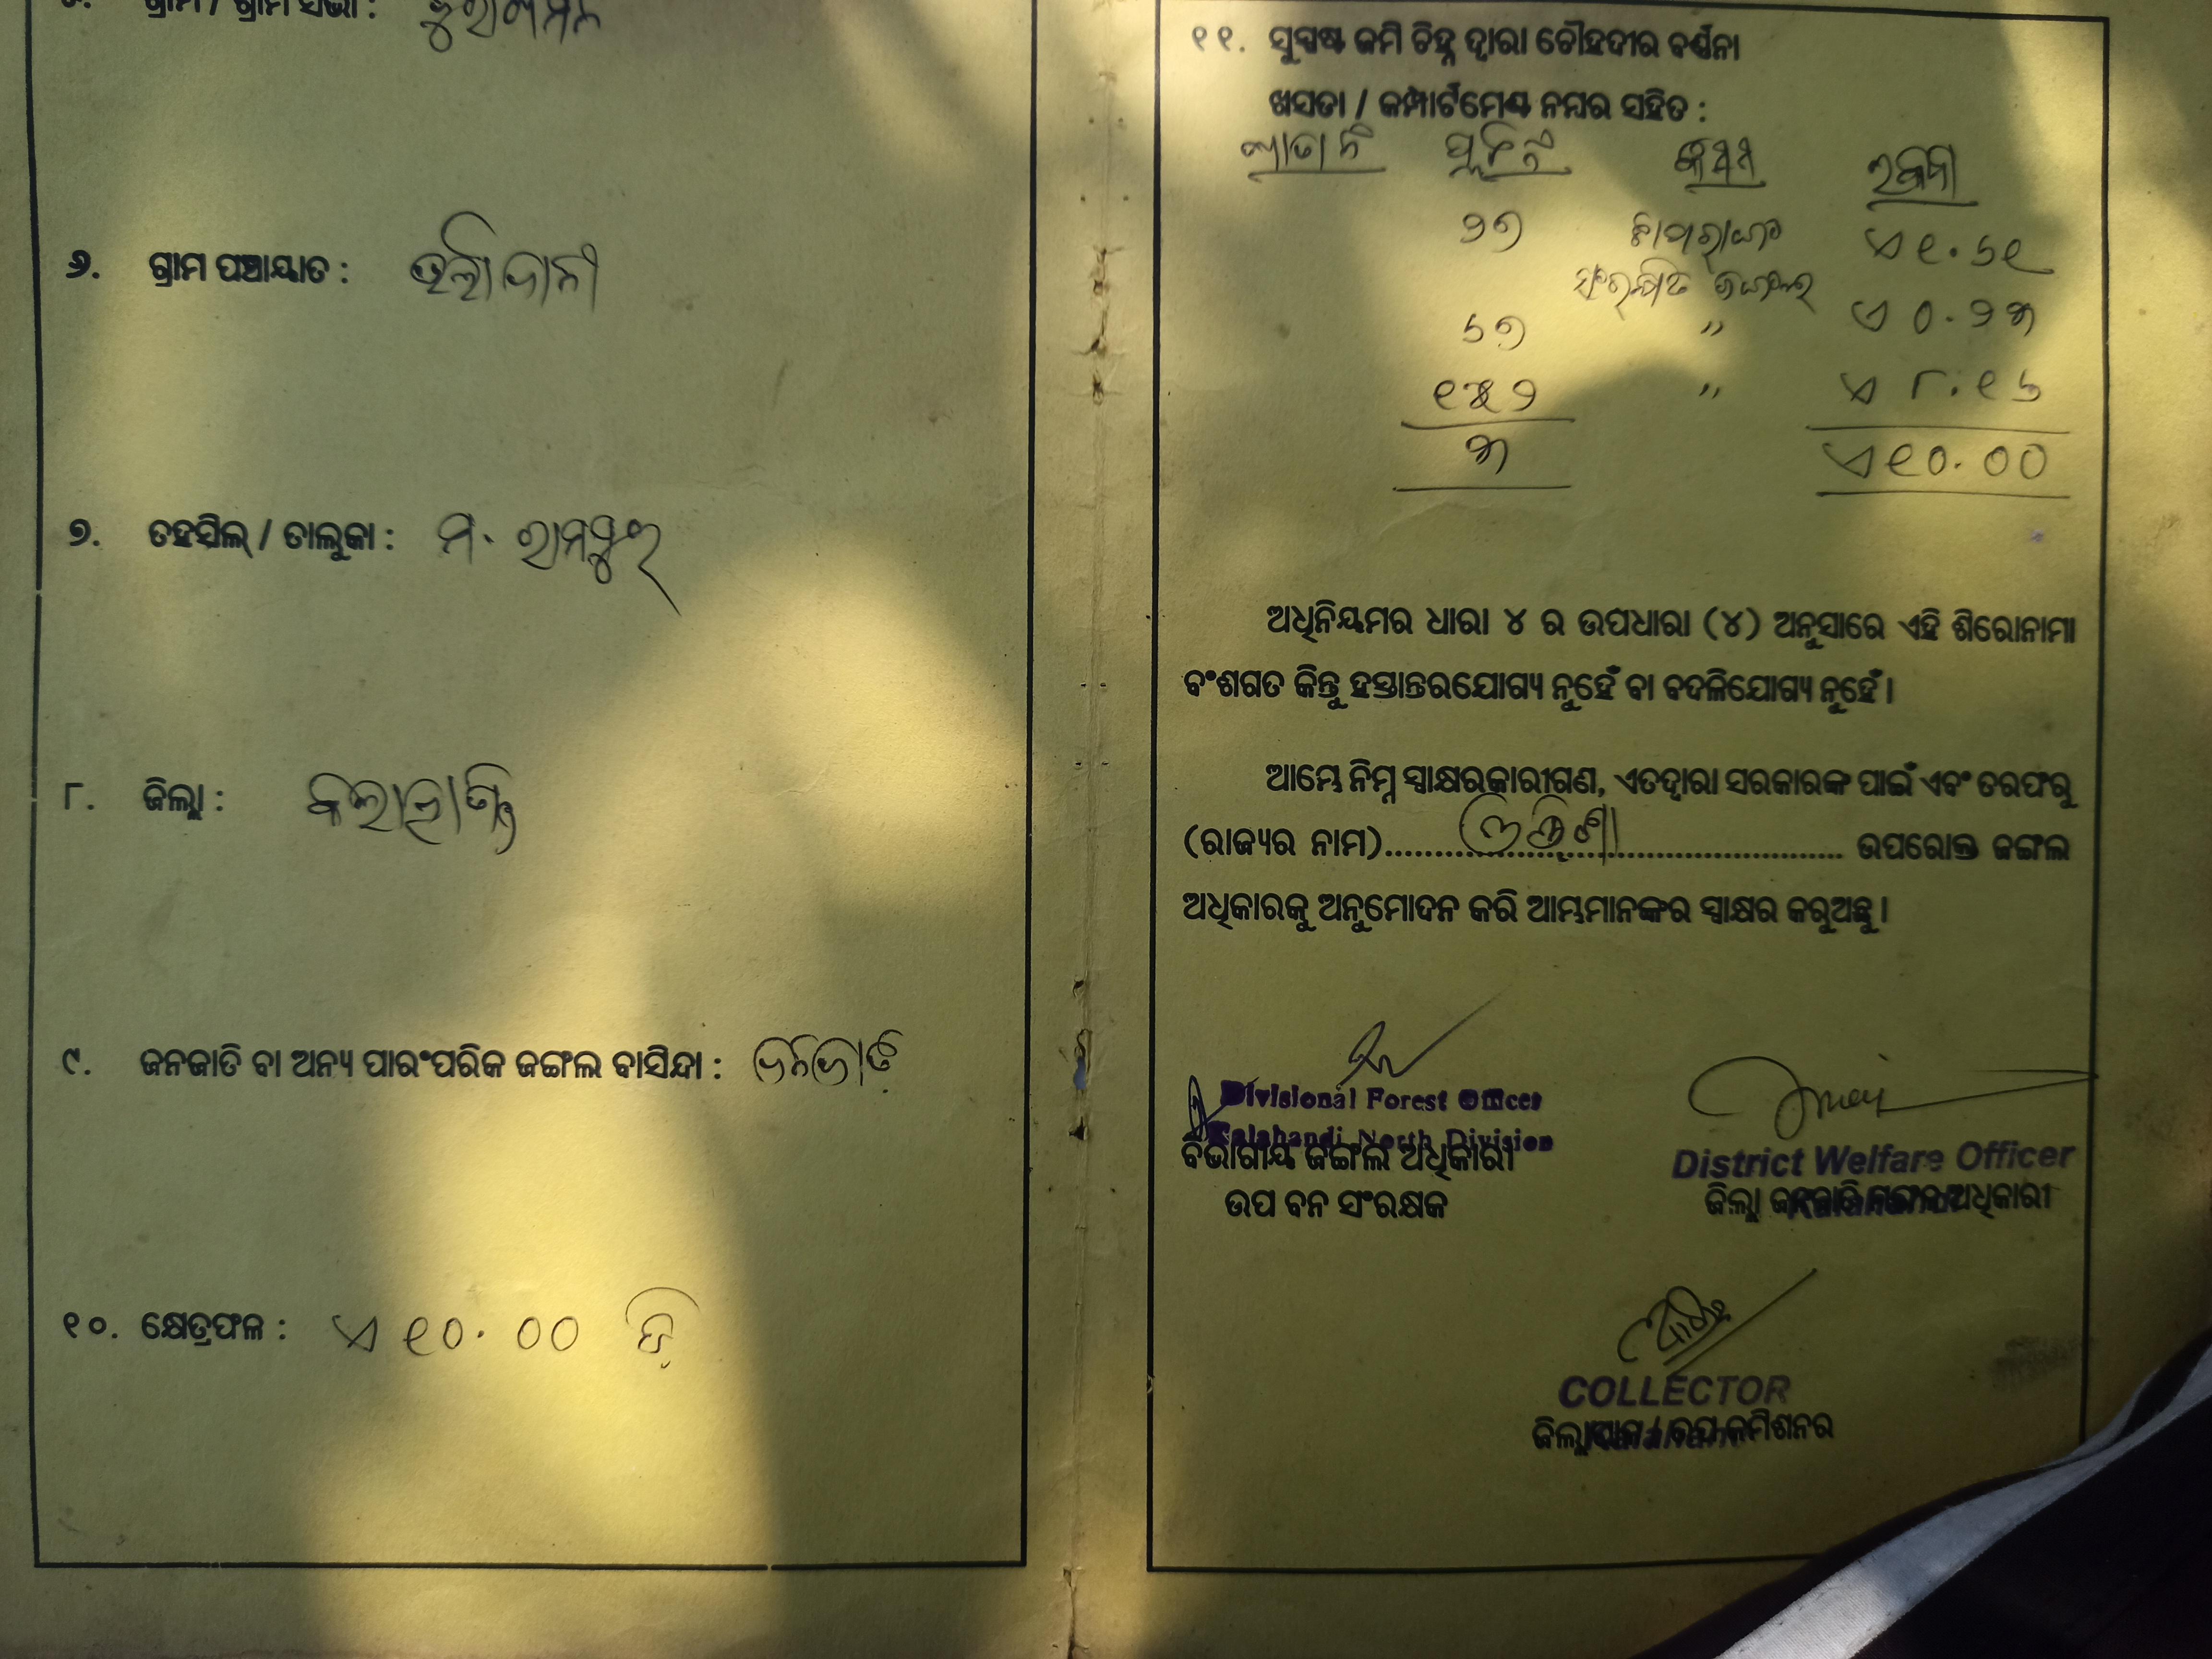 ଗ୍ରାମ / ଗ୍ରାମ ସଭା :
୬. ଗ୍ରାମ ପଞ୍ଚାୟାତ :
୭. ତହସିଲ୍ / ତାଲୁକା : ମ. ରାମପୁର
୮. ଜିଲ୍ଲା : କଳାହାଣ୍ଡି
୯. ଜନଜାତି ବା ଅନ୍ୟ ପାରଂପରିକ ଜଙ୍ଗଲ ବାସିନ୍ଦା : ଜନଜାତି
୧୦. କ୍ଷେତ୍ରଫଳ : ଏ ୧୦.୦୦ ଡି
୧୧. ସୁସ୍ପଷ୍ଟ ଜମି ଚିହ୍ନ ଦ୍ୱାରା ଚୌହଦୀର ବର୍ଣ୍ଣନା
ଖସଡା / କମ୍ପାର୍ଟମେଣ୍ଟ ନମ୍ବର ସହିତ :
ଖାତା ନଂ ପ୍ଲଟ ନଂ କିସମ ରକବା
୨୭ ଏ ୧.୬୧
ସଂରକ୍ଷିତ ଜଙ୍ଗଲ
୬୭ " ଏ ୦.୨୩
୧୫୨ " ଏ ୮.୧୬
୩ ଏ ୧୦.୦୦
ଅଧିନିୟମର ଧାରା ୪ ର ଉପଧାରା (୪) ଅନୁସାରେ ଏହି ଶିରୋନାମା
ବଂଶଗତ କିନ୍ତୁ ହସ୍ତାନ୍ତରଯୋଗ୍ୟ ନୁହେଁ ବା ବଦଳିଯୋଗ୍ୟ ନୁହେଁ।
ଆମ୍ଭେ ନିମ୍ନ ସ୍ୱାକ୍ଷରକାରୀଗଣ, ଏତଦ୍ୱାରା ସରକାରଙ୍କ ପାଇଁ ଏବଂ ତରଫରୁ
(ରାଜ୍ୟର ନାମ)..... ଓଡ଼ିଶା ..... ଉପରୋକ୍ତ ଜଙ୍ଗଲ
ଅଧିକାରକୁ ଅନୁମୋଦନ କରି ଆମ୍ଭମାନଙ୍କର ସ୍ୱାକ୍ଷର କରୁଅଛୁ।
Divisional Forest Officer
Kalahandi North Division
ବିଭାଗୀୟ ଜଙ୍ଗଲ ଅଧିକାରୀ
ଉପ ବନ ସଂରକ୍ଷକ
District Welfare Officer
ଜିଲ୍ଲା ଜନଜାତି ମଙ୍ଗଳ ଅଧିକାରୀ
COLLECTOR
ଜିଲ୍ଲାପାଳ / ଉପ କମିଶନର